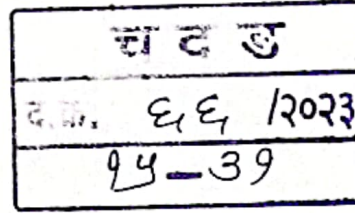 च द ड
द.क्र. ६६ /२०२३
१५-३१